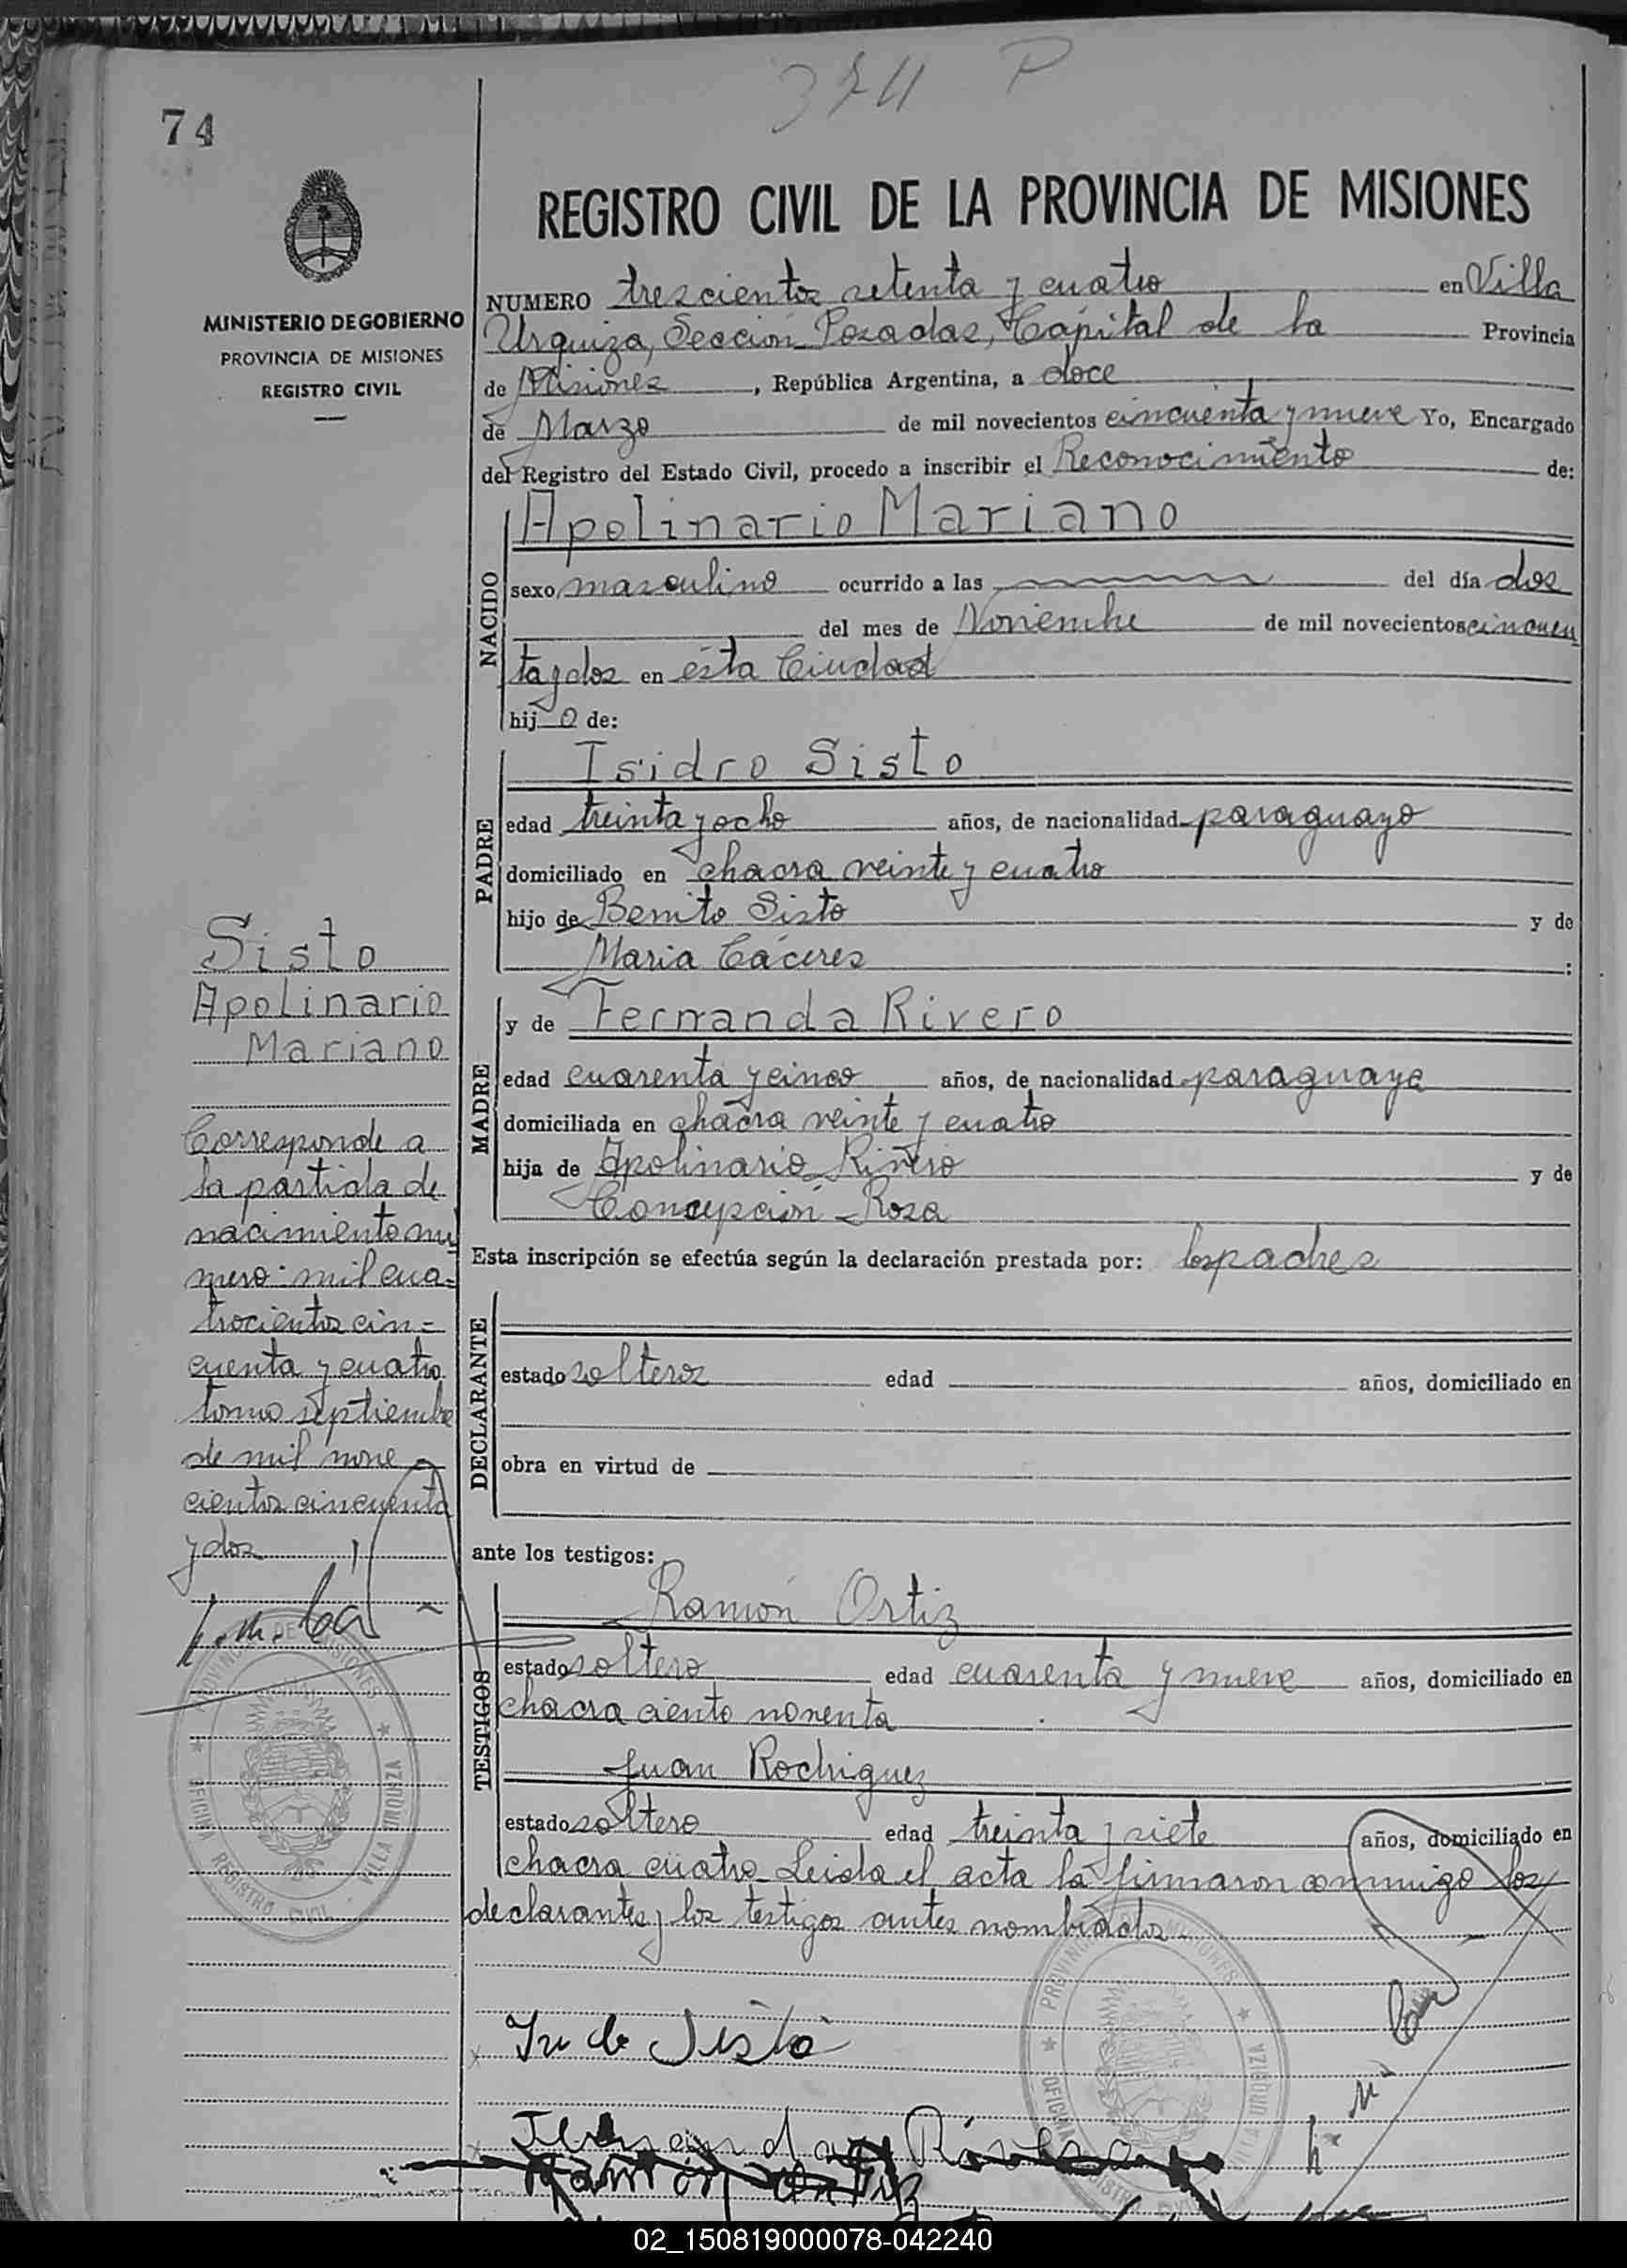 374 P
74
REGISTRO CIVIL DE LA PROVINCIA DE MISIONES
MINISTERIO DE GOBIERNO
PROVINCIA DE MISIONES
REGISTRO CIVIL
NUMERO trescientos setenta y cuatro en Villa
Urquiza, Sección Posadas, Cápital de la Provincia
de Misiones, República Argentina, a doce
de Marzo de mil novecientos cincuenta y nueve Yo, Encargado
del Registro del Estado Civil, procedo a inscribir el Reconocimiento de:
NACIDO
Apolinario Mariano
sexo masculino ocurrido a las del día dos
del mes de Noviembre de mil novecientos cincuen
ta y dos en ésta Ciudad
hijo de:
PADRE
Isidro Sisto
edad treinta y ocho años, de nacionalidad paraguayo
domiciliado en chacra veinte y cuatro
hijo de Benito Sisto y de
Maria Cáceres :
MADRE
y de Fernanda Rivero
edad cuarenta y cinco años, de nacionalidad paraguaya
domiciliada en chacra veinte y cuatro
hija de Apolinario Rivero y de
Concepción Rosa
Esta inscripción se efectúa según la declaración prestada por: los padres
DECLARANTE
estado solteros edad años, domiciliado en
obra en virtud de
ante los testigos:
TESTIGOS
Ramón Ortiz
estado soltero edad cuarenta y nueve años, domiciliado en
chacra ciento noventa
Juan Rodriguez
estado soltero edad treinta y siete años, domiciliado en
chacra cuatro Leida el acta la firmaron conmigo los
declarantes y los testigos antes nombrados
Sisto
Apolinario
Mariano
Corresponde a
la partida de
nacimiento nu
mero: mil cua=
trocientos cin=
cuenta y cuatro
tomo septiembre
de mil nove
cientos cincuenta
y dos
PROVINCIA DE MISIONES
OFICINA REGISTRO CIVIL VILLA URQUIZA
Sisto
Fernanda Rivero
Ramón Ortiz
PROVINCIA DE MISIONES
OFICINA REGISTRO CIVIL VILLA URQUIZA
02_150819000078-042240